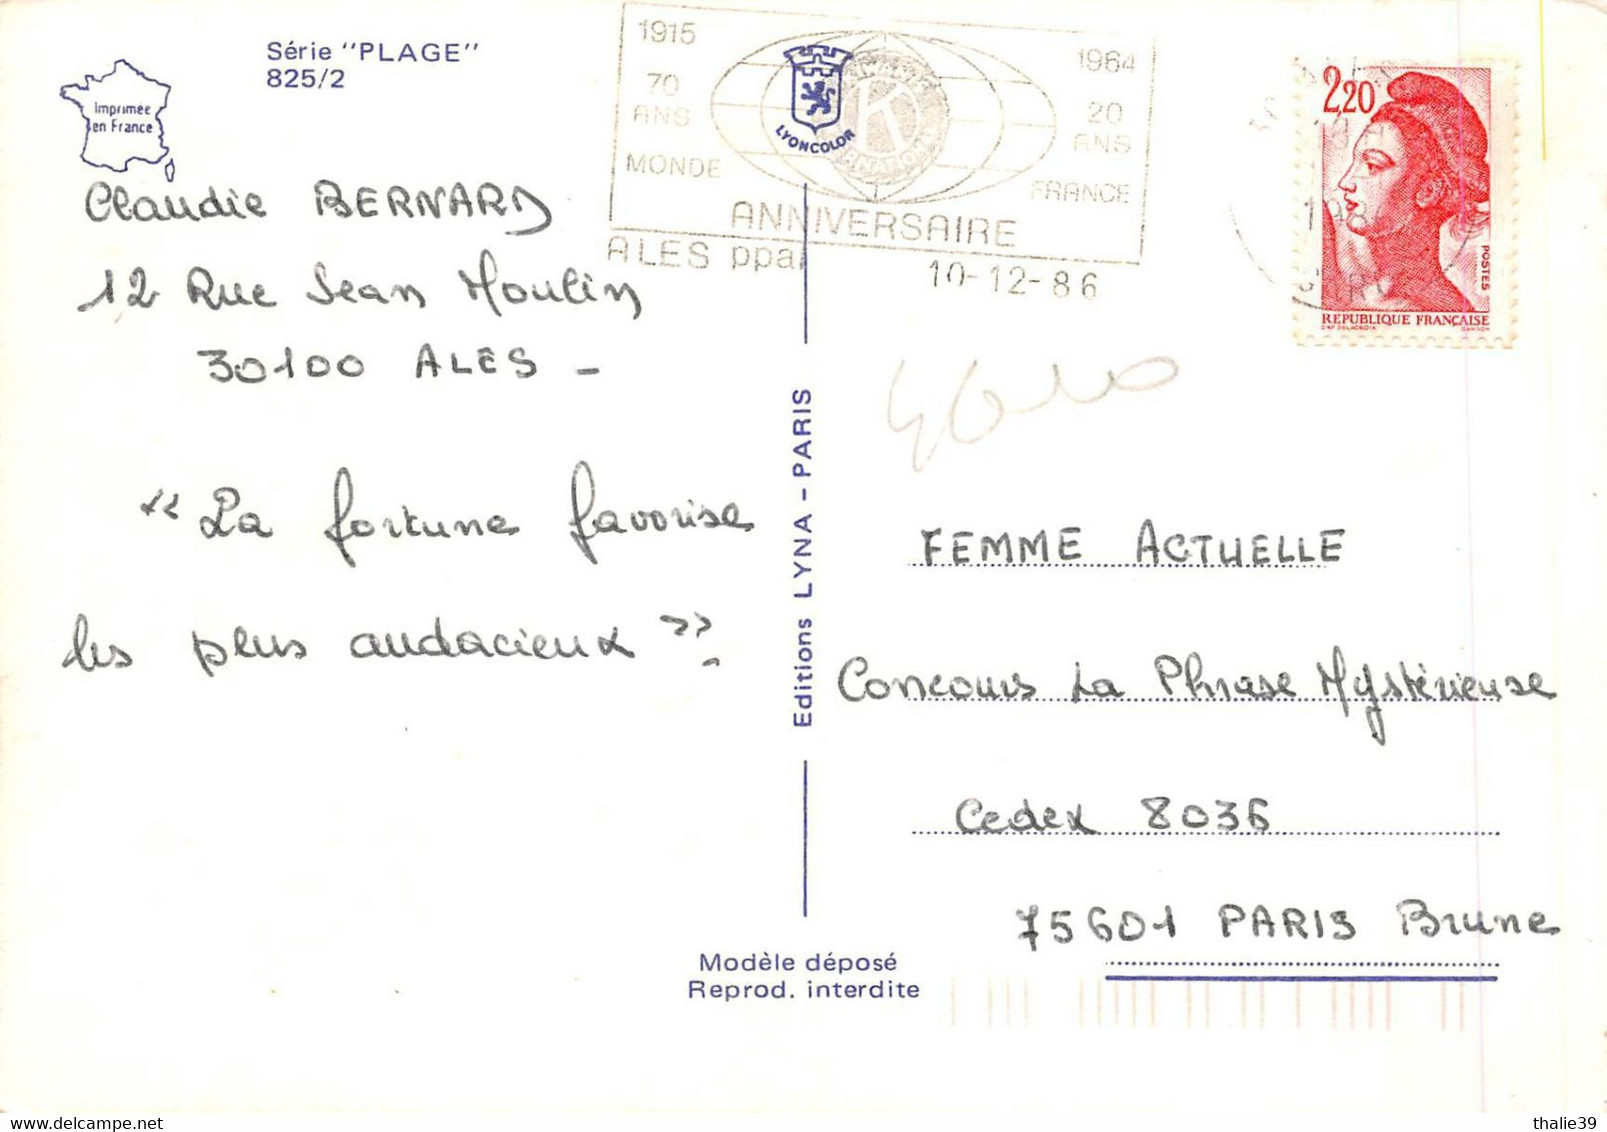 Série "PLAGE"
825/2
Imprimée
en France
1915
70
ANS
MONDE
1964
20
ANS
FRANCE
LYONCOLOR
K
ANNIVERSAIRE
ALES ppal
10-12-86
2,20
POSTES
REPUBLIQUE FRANÇAISE
D'AP DELACROIX
GANDON
Claudie BERNARD
12 Rue Jean Moulin
30100 ALES -
« La fortune favorise
les plus audacieux ».
Editions LYNA - PARIS
FEMME ACTUELLE
Concours La Phrase Mystérieuse
Cedex 8036
75601 PARIS Brune
Modèle déposé
Reprod. interdite
thalie39